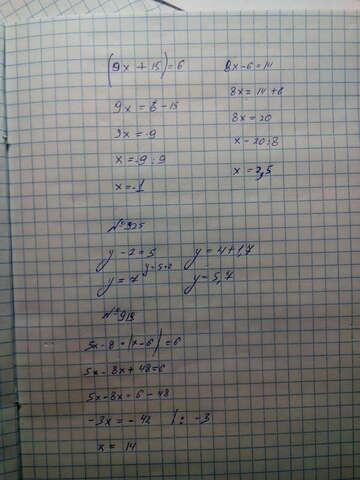 (9x + 15) = 6
9x = 6 - 15
9x = -9
x = -9 : 9
x = -1
8x - 6 = 14
8x = 14 + 6
8x = 20
x = 20 : 8
x = 2,5
№925
y - 2 = 5
y = 5+2
y = 7
y = 4 + 1,7
y = 5,7
№919
5x - 8 * (x - 6) = 6
5x - 8x + 48 = 6
5x - 8x = 6 - 48
-3x = -42 | : -3
x = 14